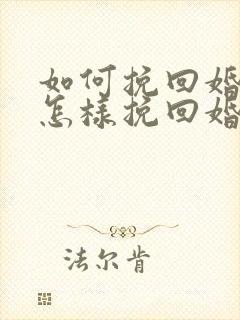 如何挽回婚
怎样挽回婚
法尔肯